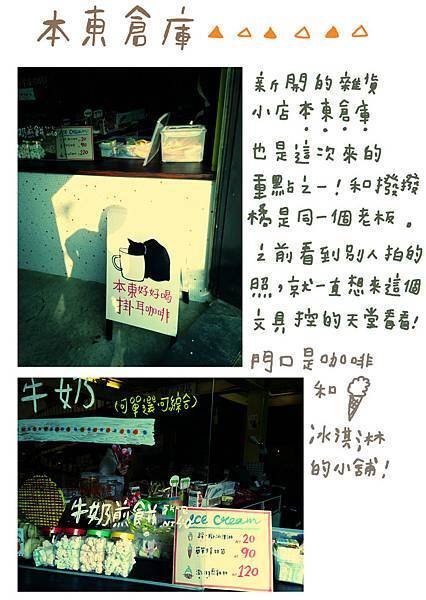 本東倉庫
新開的雜貨
小店本東倉庫
也是這次來的
重點之一!和撥撥
橘是同一個老板。
之前看到別人拍的
照,就一直想來這個
文具控的天堂看看!
門口是咖啡
和
冰淇淋
的小舖!
ICE CREAM
本東好好喝
掛耳咖啡
牛奶
(可單選可綜合)
牛奶煎餅
ICE CREAM
NT 20
NT 90
NT 120